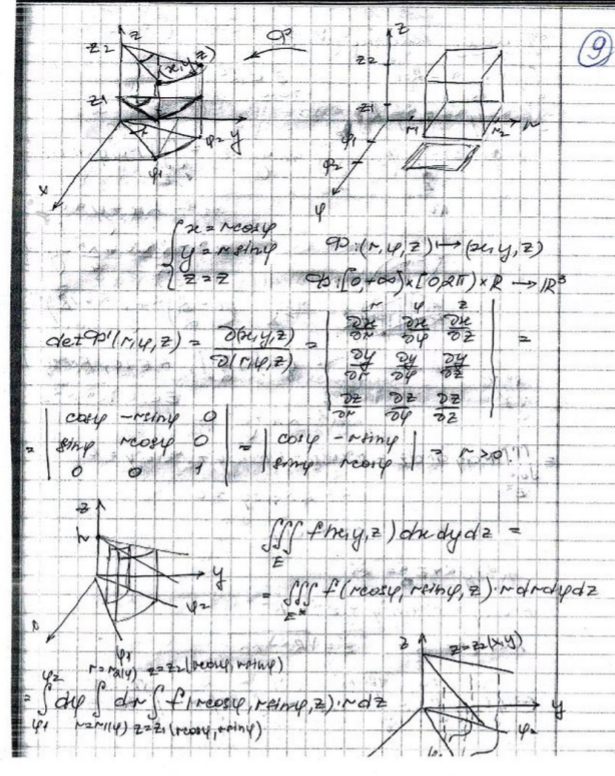 9
z z2 (x,y,z) z1 φ2 y φ1 x
Φ
z z2 z1 r1 r2 r φ1 φ2 φ
{ x = r cosφ
y = r sinφ
z = z
Φ: (r,φ,z) ↦ (x,y,z)
Φ: [0,+∞) × [0,2π) × R → R³
r φ z
det Φ'(r,φ,z) = ∂(x,y,z)/∂(r,φ,z) = | ∂x/∂r ∂x/∂φ ∂x/∂z |
| ∂y/∂r ∂y/∂φ ∂y/∂z |
| ∂z/∂r ∂z/∂φ ∂z/∂z | =
= | cosφ -r sinφ 0 |
| sinφ r cosφ 0 |
| 0 0 1 | = | cosφ -r sinφ |
| sinφ r cosφ | = r > 0
z h y φ2 φ1
∭_E f(x,y,z) dx dy dz =
= ∭_E* f(r cosφ, r sinφ, z)·r dr dφ dz
φ2 r=r2(φ) z=z2(r cosφ, r sinφ)
= ∫ dφ ∫ dr ∫ f(r cosφ, r sinφ, z)·r dz
φ1 r=r1(φ) z=z1(r cosφ, r sinφ)
z z=z2(x,y) y φ2